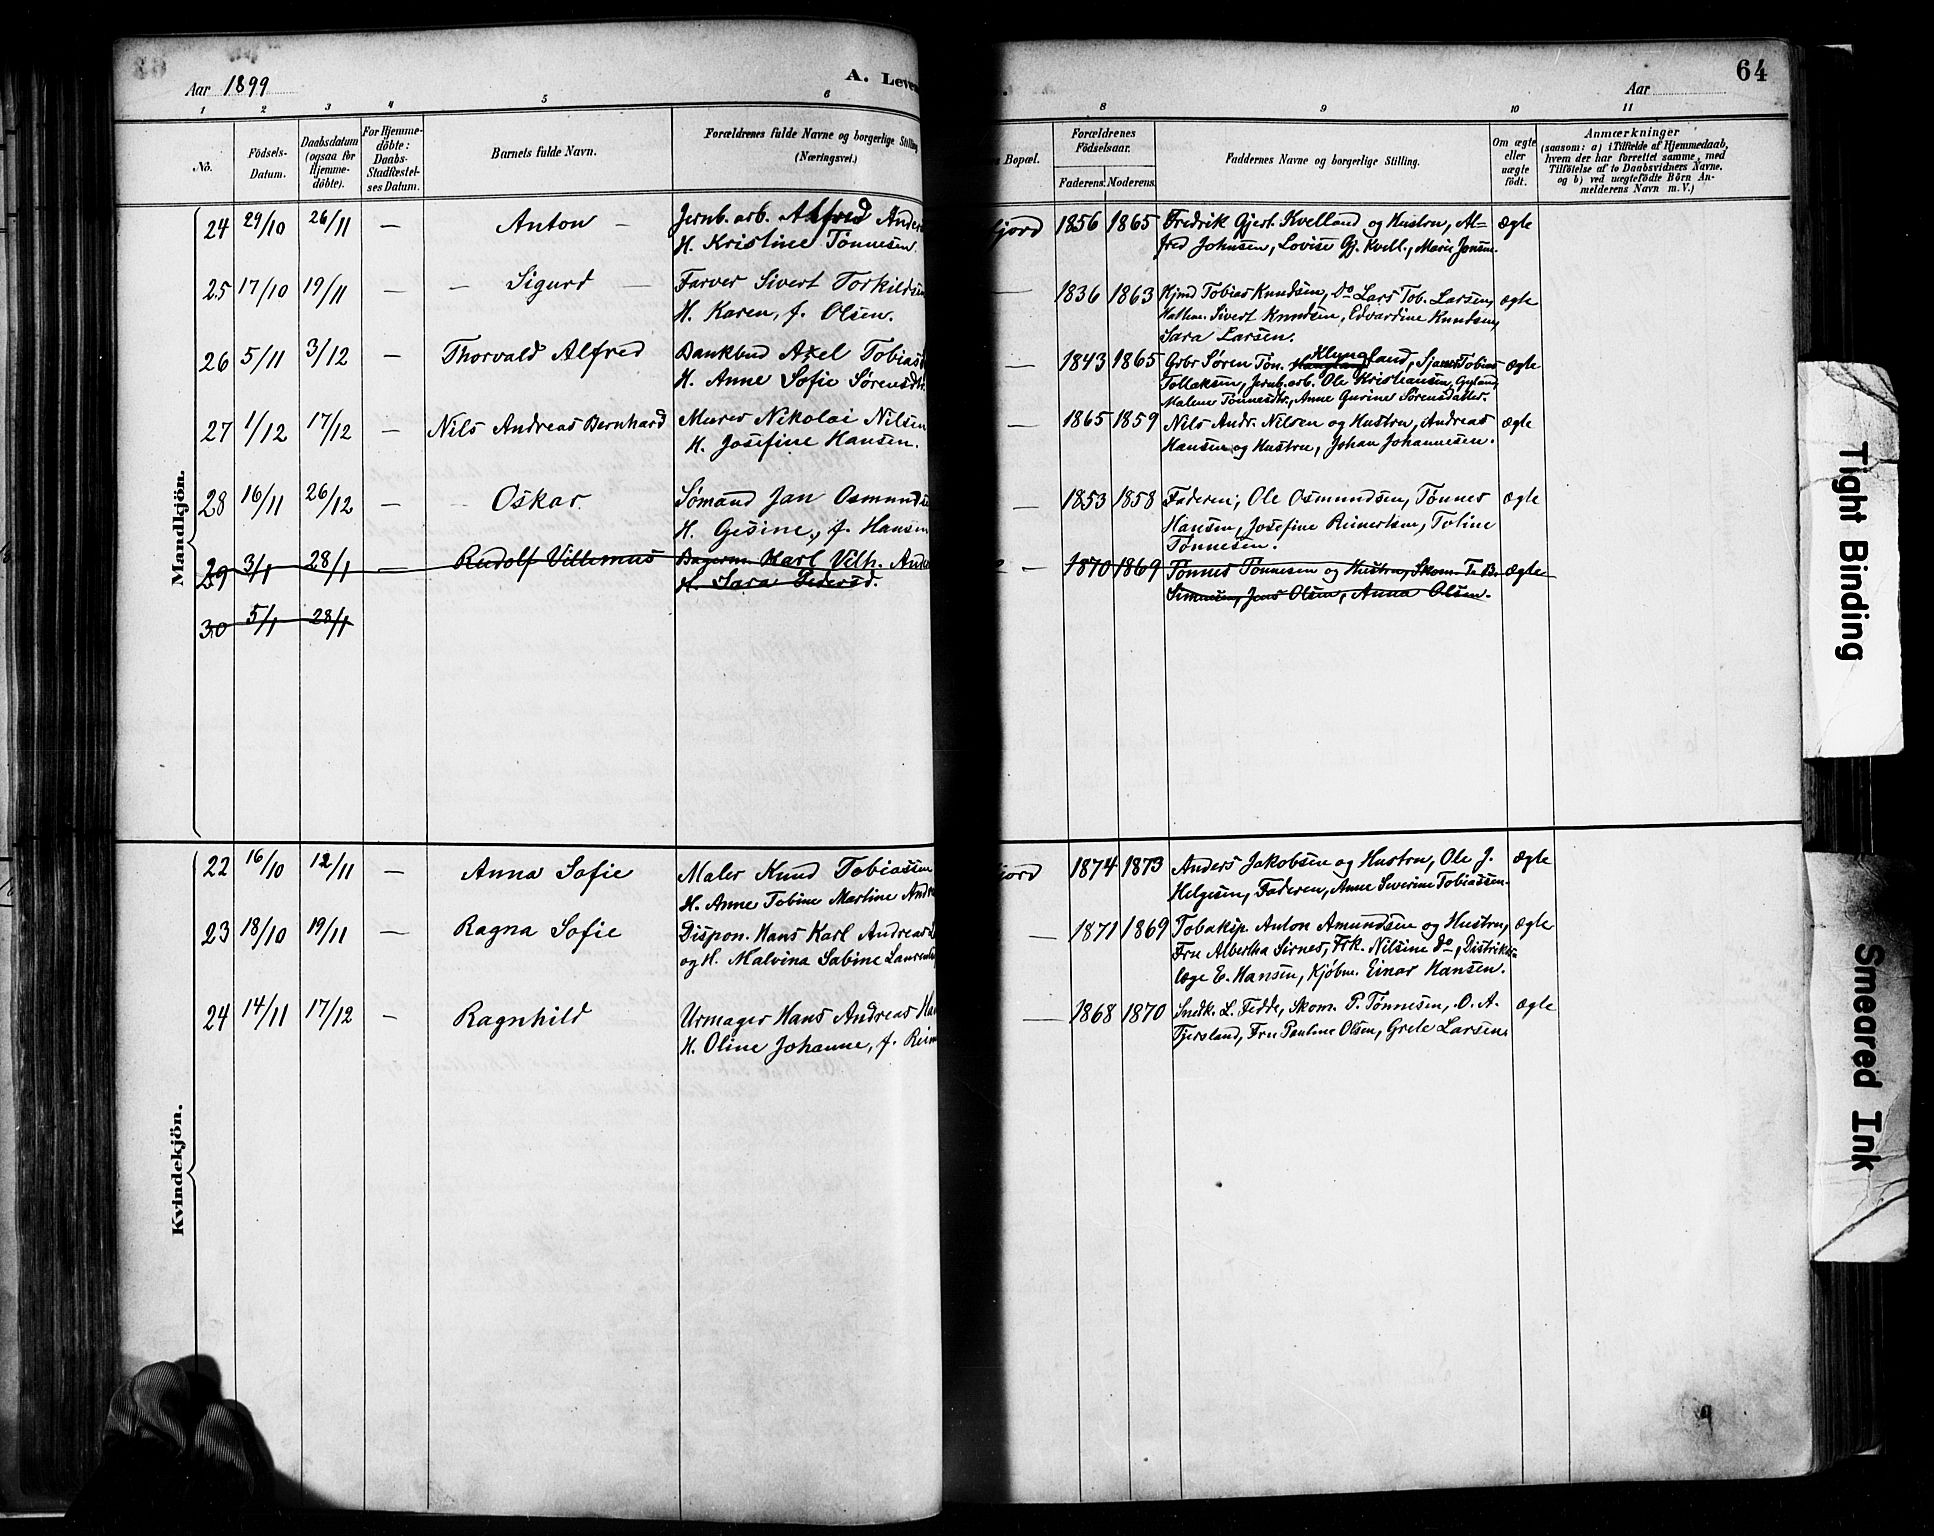 Aar 1899
A. Leven
64
Aar
1 2 3 4 5 6 8 9 10 11
No.
Födsels-Datum.
Daabsdatum (ogsaa for Hjemme-döbte).
For Hjemme-döbte: Daabs-Stadfæstel-ses Datum.
Barnets fulde Navn.
Forældrenes fulde Navne og borgerlige Stilling (Næringsvei.)
s Bopæl.
Forældrenes Födselsaar.
Faderens. Moderens.
Faddernes Navne og borgerlige Stilling.
Om ægte eller uægte födt.
Anmærkninger
(saasom: a) i Tilfælde af Hjemmedaab,
hvem der har forrettet samme, med
Tilföielse af to Daabsvidners Navne,
og b) ved uægtefödte Börn An-
melderens Navn m. V.)
Mandkjön.
24 29/10 26/11 — Anton — Jernb. arb. Alfred Anders fjord 1856 1865 Fredrik Gjert Kvelland og Hustru, Al= ægte
H. Kristine Tönnesen. fred Johnsen, Lovise Gj. Kvell., Marie Jonsen.
25 17/10 19/11 — Sigurd — Farver Sivert Torkildsen — 1836 1863 Kjmd Tobias Knudsen, Do Lars Tob. Larsen, ægte
H. Karen, f. Olsen. Sivert Knudsen, Edvardine Knudsen,
Sara Larsen.
26 5/11 3/12 — Thorvald Alfred Bankbud Axel Tobias — 1843 1865 Grbr Sören Tön. Klungland, Tobias ægte
H. Anne Sofie Sørensdtr. Tollaksen, Jernb. arb. Ole Kristiansen,
Malene Tønnesdtr., Anne Gurine Sørensdatter.
27 1/12 17/12 — Nils Andreas Bernhard Murer Nikolai Nilsen — 1865 1859 Nils Andr. Nilsen og Hustru, Andreas ægte
H. Josefine Hansen. Hansen og Hustru, Johan Johannesen.
28 16/11 26/12 — Oskar Sømand Jan Osmunds — 1853 1858 Faderen, Ole Osmundsen, Tönnes ægte
H. Gesine, f. Hansen Hansen, Josefine Reinertsen, Toline
Tønnesen.
29 3/1 28/1 — Rudolf Villemus Bagerm. Karl Vilh. Ande — 1870 1869 Tønnes Tønnesen og Hustru, Skom. T. B. ægte
H. Sara Pedersd. Simnesen, Jens Olsen, Anna Olsen.
30 5/1 28/1
Kvindekjön.
22 16/10 12/11 — Anna Sofie Maler Knud Tobiassen fjord 1874 1873 Anders Jakobsen og Hustru, Ole J. ægte
H. Anne Tobine Martine Andre Helgesen, Faderen, Anne Severine Tobiassen.
23 18/10 19/11 — Ragna Sofie Dispon. Hans Karl Andreas — 1871 1869 Tobaksp. Anton Amundsen og Hustru, ægte
og H. Malvina Sabine Fru Albertha Sirnes, Frk. Nilsine Do, Distrikts-
læge E. Hansen, Kjøbm. Einar Hansen.
24 14/11 17/12 — Ragnhild Urmager Hans Andreas Ha — 1868 1870 Snedk. L. Fedde, Skom. P. Tønnesen, O. A. ægte
H. Oline Johanne, f. Rein Tjersland, Fru Pauline Olsen, Grete Larsen.
Tight Binding
Smeared Ink